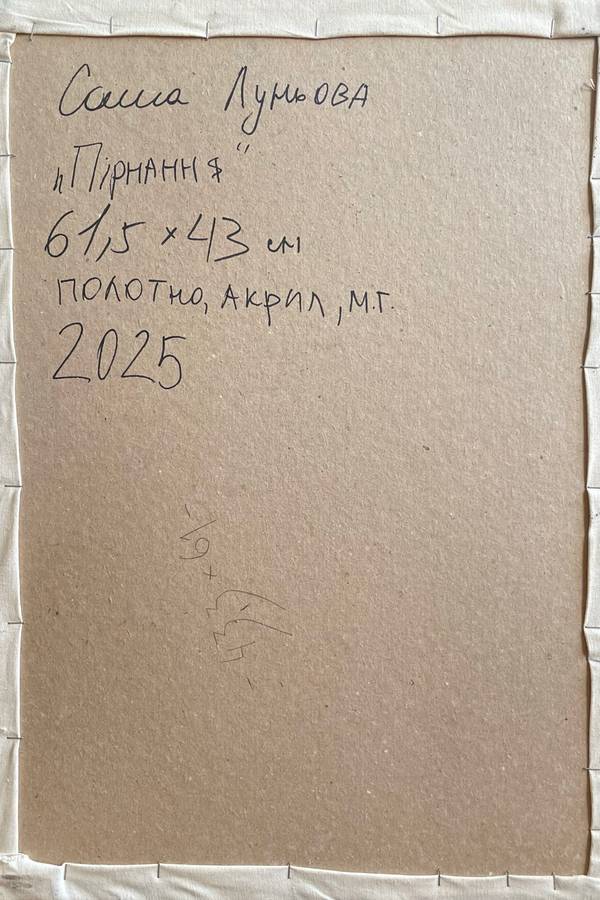 Саша Луньова
„Пірнання“
61,5 × 43 см
полотно, акрил, м.г.
2025